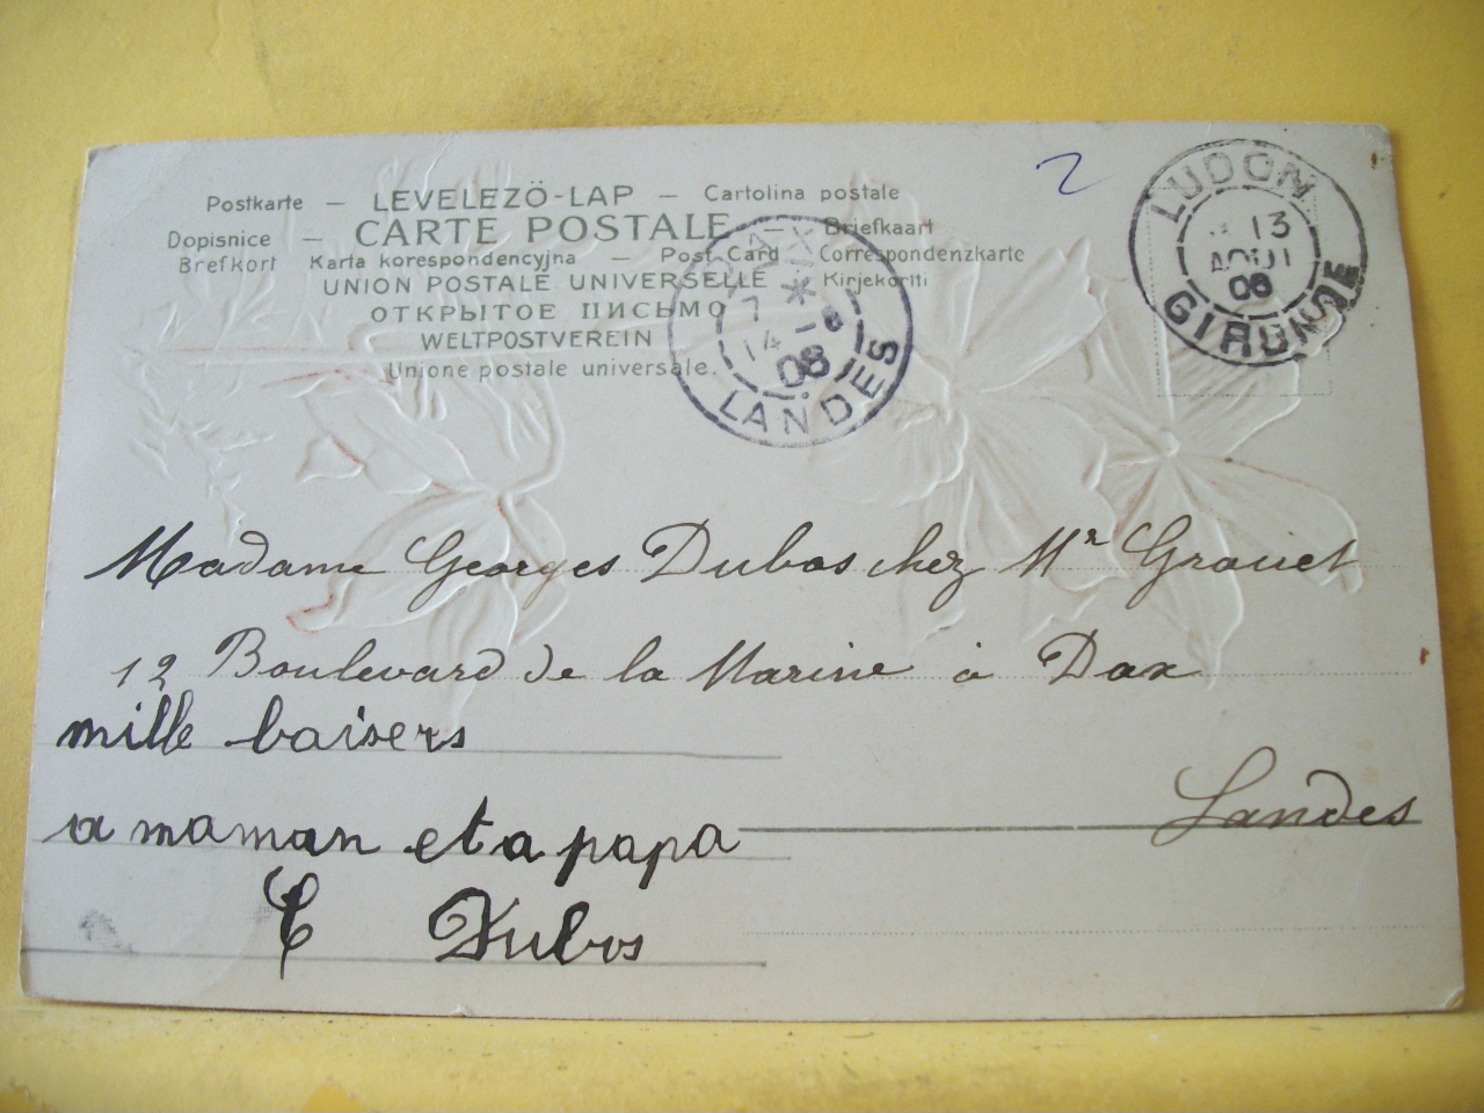 Postkarte — LEVELEZÖ-LAP — Cartolina postale
Dopisnice — CARTE POSTALE — Briefkaart
Brefkort Karta korespondencyjna — Post Card Correspondenzkarte
UNION POSTALE UNIVERSELLE Kirjekortti
ОТКРЫТОЕ ПИСЬМО
WELTPOSTVEREIN
Unione postale universale.
2
LUDON
13
AOUT
08
GIRONDE
DAX
7 *
14 - 8
08
LANDES
Madame Georges Dubos chez Mr Grouet
12 Boulevard de la Marine à Dax
Landes
mille baisers
a maman et a papa
Dubos